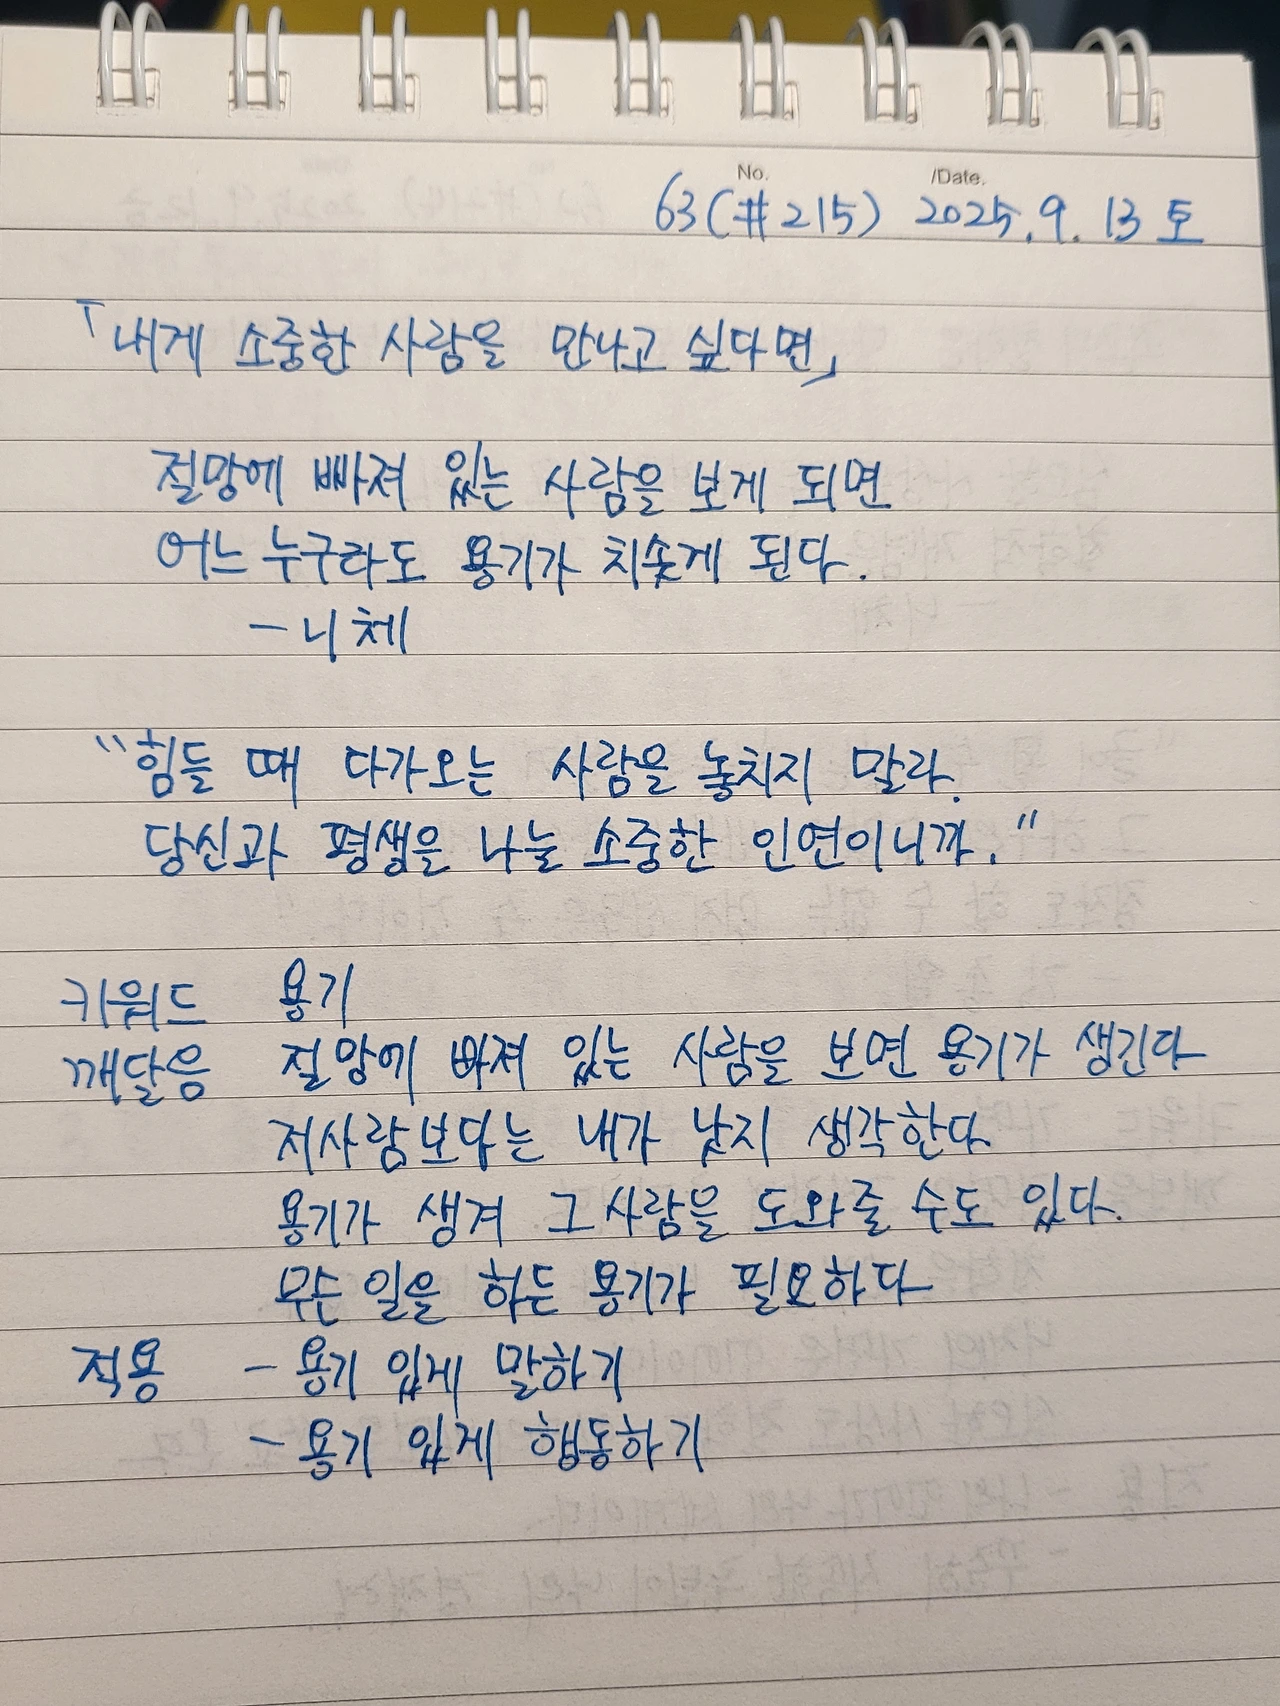 No. /Date.
63(#215) 2025. 9. 13 토
「내게 소중한 사람을 만나고 싶다면」
절망에 빠져 있는 사람을 보게 되면
어느 누구라도 용기가 치솟게 된다.
- 니체
"힘들 때 다가오는 사람을 놓치지 말라.
당신과 평생을 나눌 소중한 인연이니까."
키워드 용기
깨달음 절망에 빠져 있는 사람을 보면 용기가 생긴다
저사람보다는 내가 낫지 생각한다
용기가 생겨 그 사람을 도와줄 수도 있다.
무슨 일을 하든 용기가 필요하다
적용 - 용기 있게 말하기
- 용기 있게 행동하기